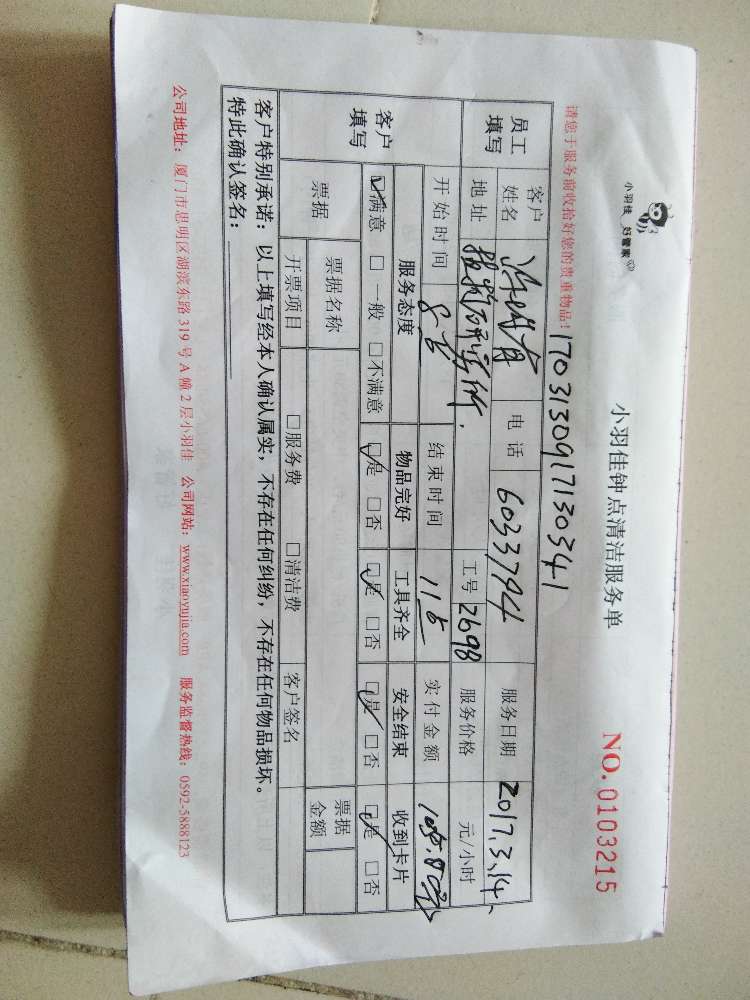 小羽佳 好管家
小羽佳钟点清洁服务单
NO.0103215
请您于服务前收拾好您的贵重物品！ 1703130917130341
员工填写 客户姓名 电话 6033794 服务日期 2017.3.14
地址 工号 2698 服务价格 元/小时
客户填写 开始时间 8 结束时间 11 实付金额
服务态度 物品完好 工具齐全 安全结束 收到卡片
☑满意 □一般 □不满意 ☑是 □否 ☑是 □否 ☑是 □否 ☑是 □否
票据 票据名称 客户签名 票据金额
开票项目 □服务费 □清洁费
客户特别承诺：以上填写经本人确认属实，不存在任何纠纷，不存在任何物品损坏。
特此确认签名：
公司地址：厦门市思明区湖滨东路 319 号 A 幢 2 层小羽佳 公司网站：www.xiaoyujia.com 服务监督热线：0592-5888123